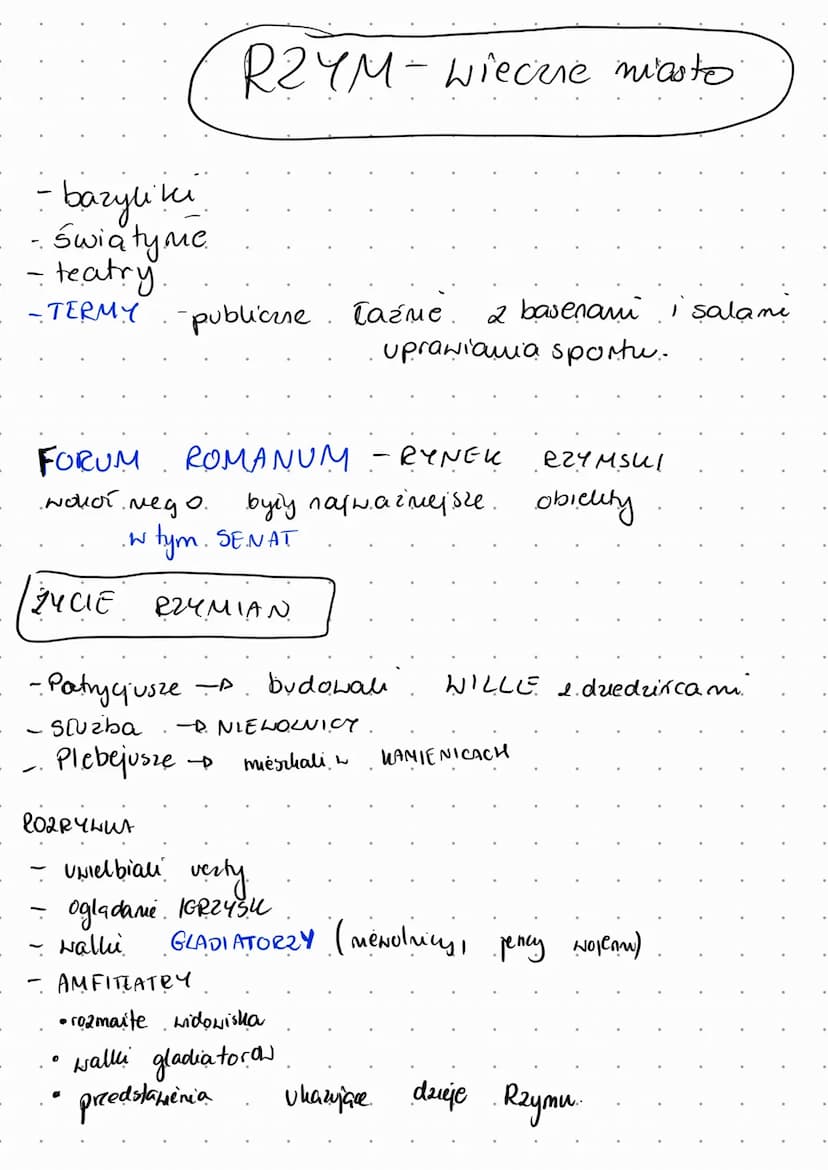 RZYM - wieczne miasto
- bazyliki
- świątynie
- teatry
- TERMY - publiczne łaźnie z basenami i salami
uprawiania sportu.
FORUM ROMANUM - RYNEK RZYMSKI
wokół niego były najważniejsze obiekty
w tym SENAT
ŻYCIE RZYMIAN
- Patrycjusze → budowali WILLE z dziedzińcami
- służba → NIEWOLNICY
- Plebejusze → mieszkali w KAMIENICACH
ROZRYWKA
- uwielbiali
- oglądanie IGRZYSK
- walki GLADIATORZY (niewolnicy, jeńcy wojenni)
- AMFITEATRY
• rozmaite widowiska
• walki gladiatorów
• przedstawienia ukazujące dzieje Rzymu.